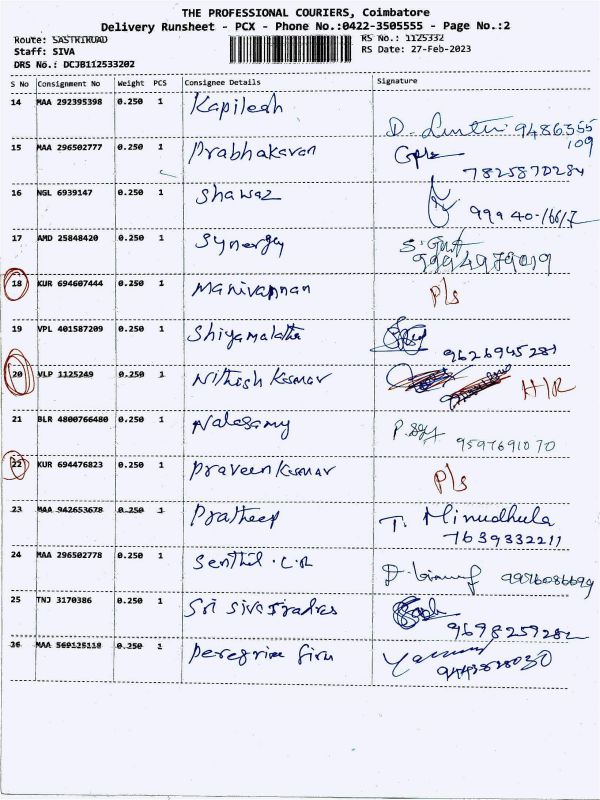 THE PROFESSIONAL COURIERS, Coimbatore
Delivery Runsheet - PCX - Phone No.:0422-3505555 - Page No.:2
Route: SASTRIROAD RS No.: 1125332
Staff: SIVA RS Date: 27-Feb-2023
DRS No.: DCJB112533202
S No Consignment No Weight PCS Consignee Details Signature
14 MAA 292395398 0.250 1 Kapilesh
D. 9486355
109
15 MAA 296502777 0.250 1 Prabhakaran
7825870284
16 NGL 6939147 0.250 1 Shawaz
99940-16617
17 AMD 25848420 0.250 1 Synergy
18 KUR 694607444 0.250 1 Manivannan P/s
19 VPL 401587209 0.250 1 Shiyamalatha
9626945281
20 VLP 1125249 0.250 1 Nithish Kumar H/R
21 BLR 4800766480 0.250 1 Nalesamy
9597691070
22 KUR 694476823 0.250 1 Praveen Kumar P/s
23 MAA 942653678 0.250 1 Pratheep T. Minudhula
7639332211
24 MAA 296502778 0.250 1 Senthil .C.R
9976086699
25 TNJ 3170386 0.250 1 Sri Siva
9698259282
26 MAA 569125118 0.250 1 Peregrine firm